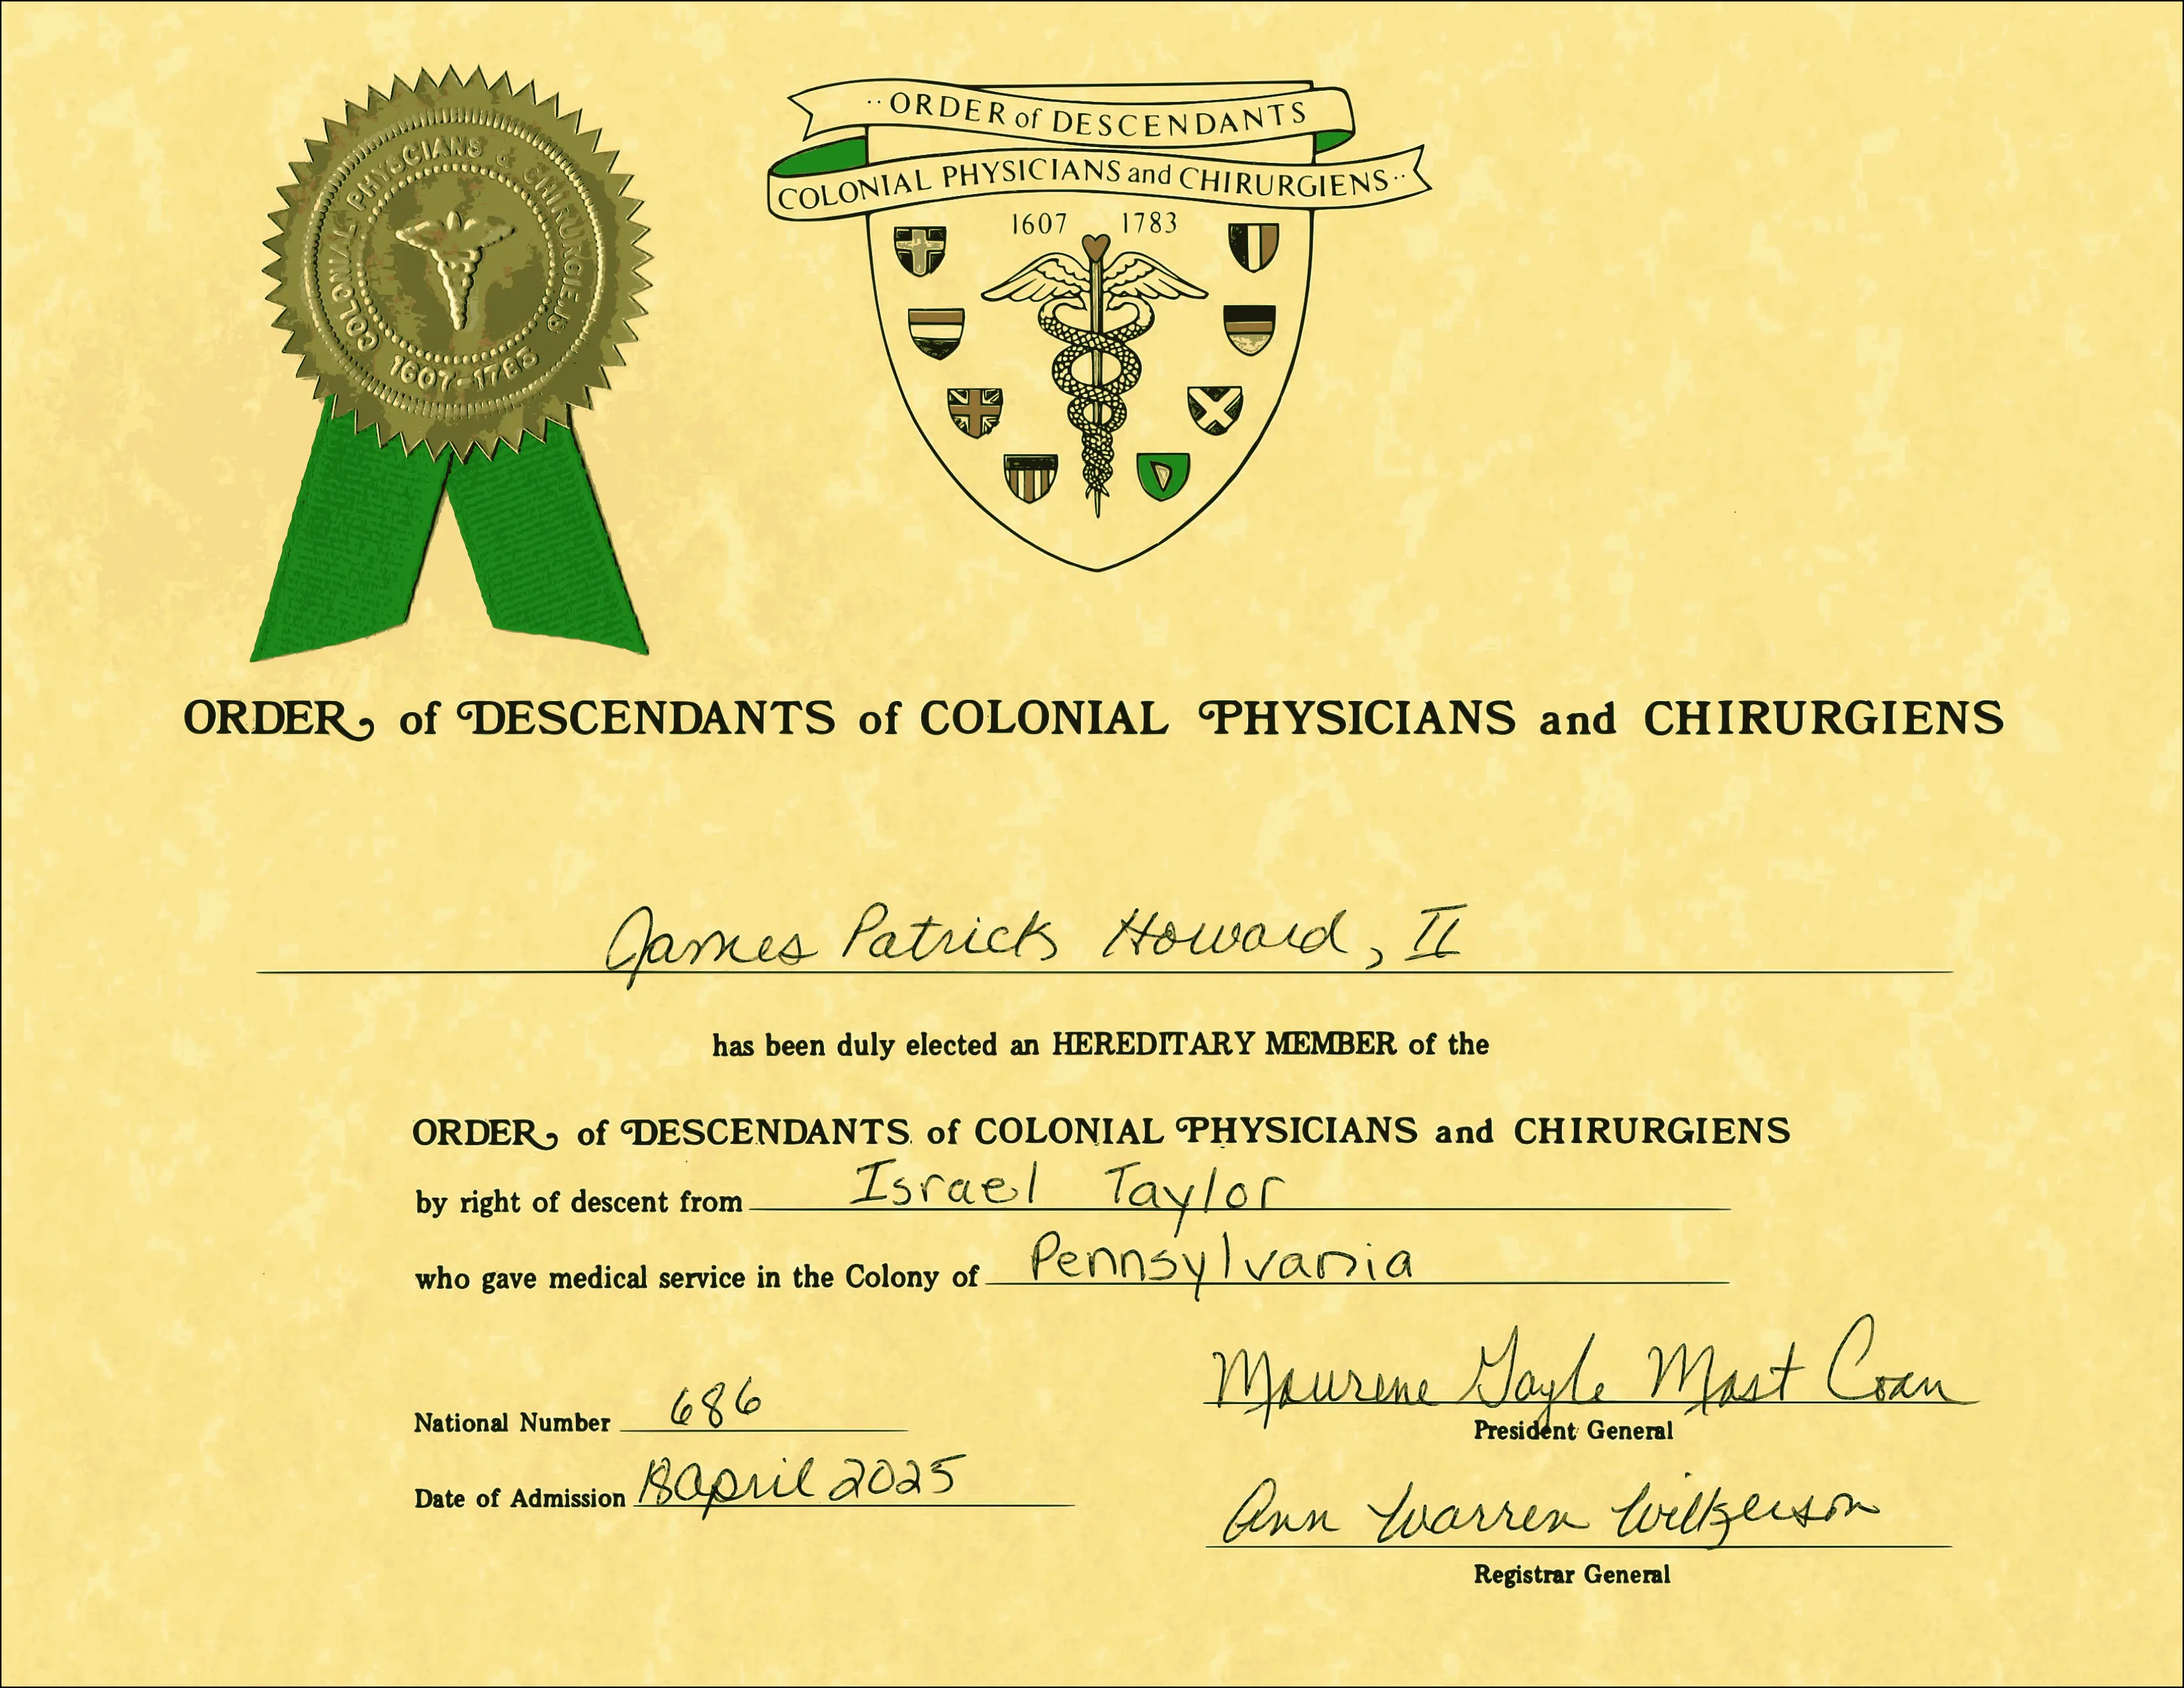 COLONIAL PHYSICIANS & CHIRURGIENS
1607-1783
··ORDER of DESCENDANTS
COLONIAL PHYSICIANS and CHIRURGIENS··
1607 1783
ORDER of DESCENDANTS of COLONIAL PHYSICIANS and CHIRURGIENS
James Patrick Howard, II
has been duly elected an HEREDITARY MEMBER of the
ORDER of DESCENDANTS of COLONIAL PHYSICIANS and CHIRURGIENS
by right of descent from Israel Taylor
who gave medical service in the Colony of Pennsylvania
National Number 686
Maurene Gayle Mast Coan
President General
Date of Admission 18 April 2025
Ann Warren Wilkerson
Registrar General